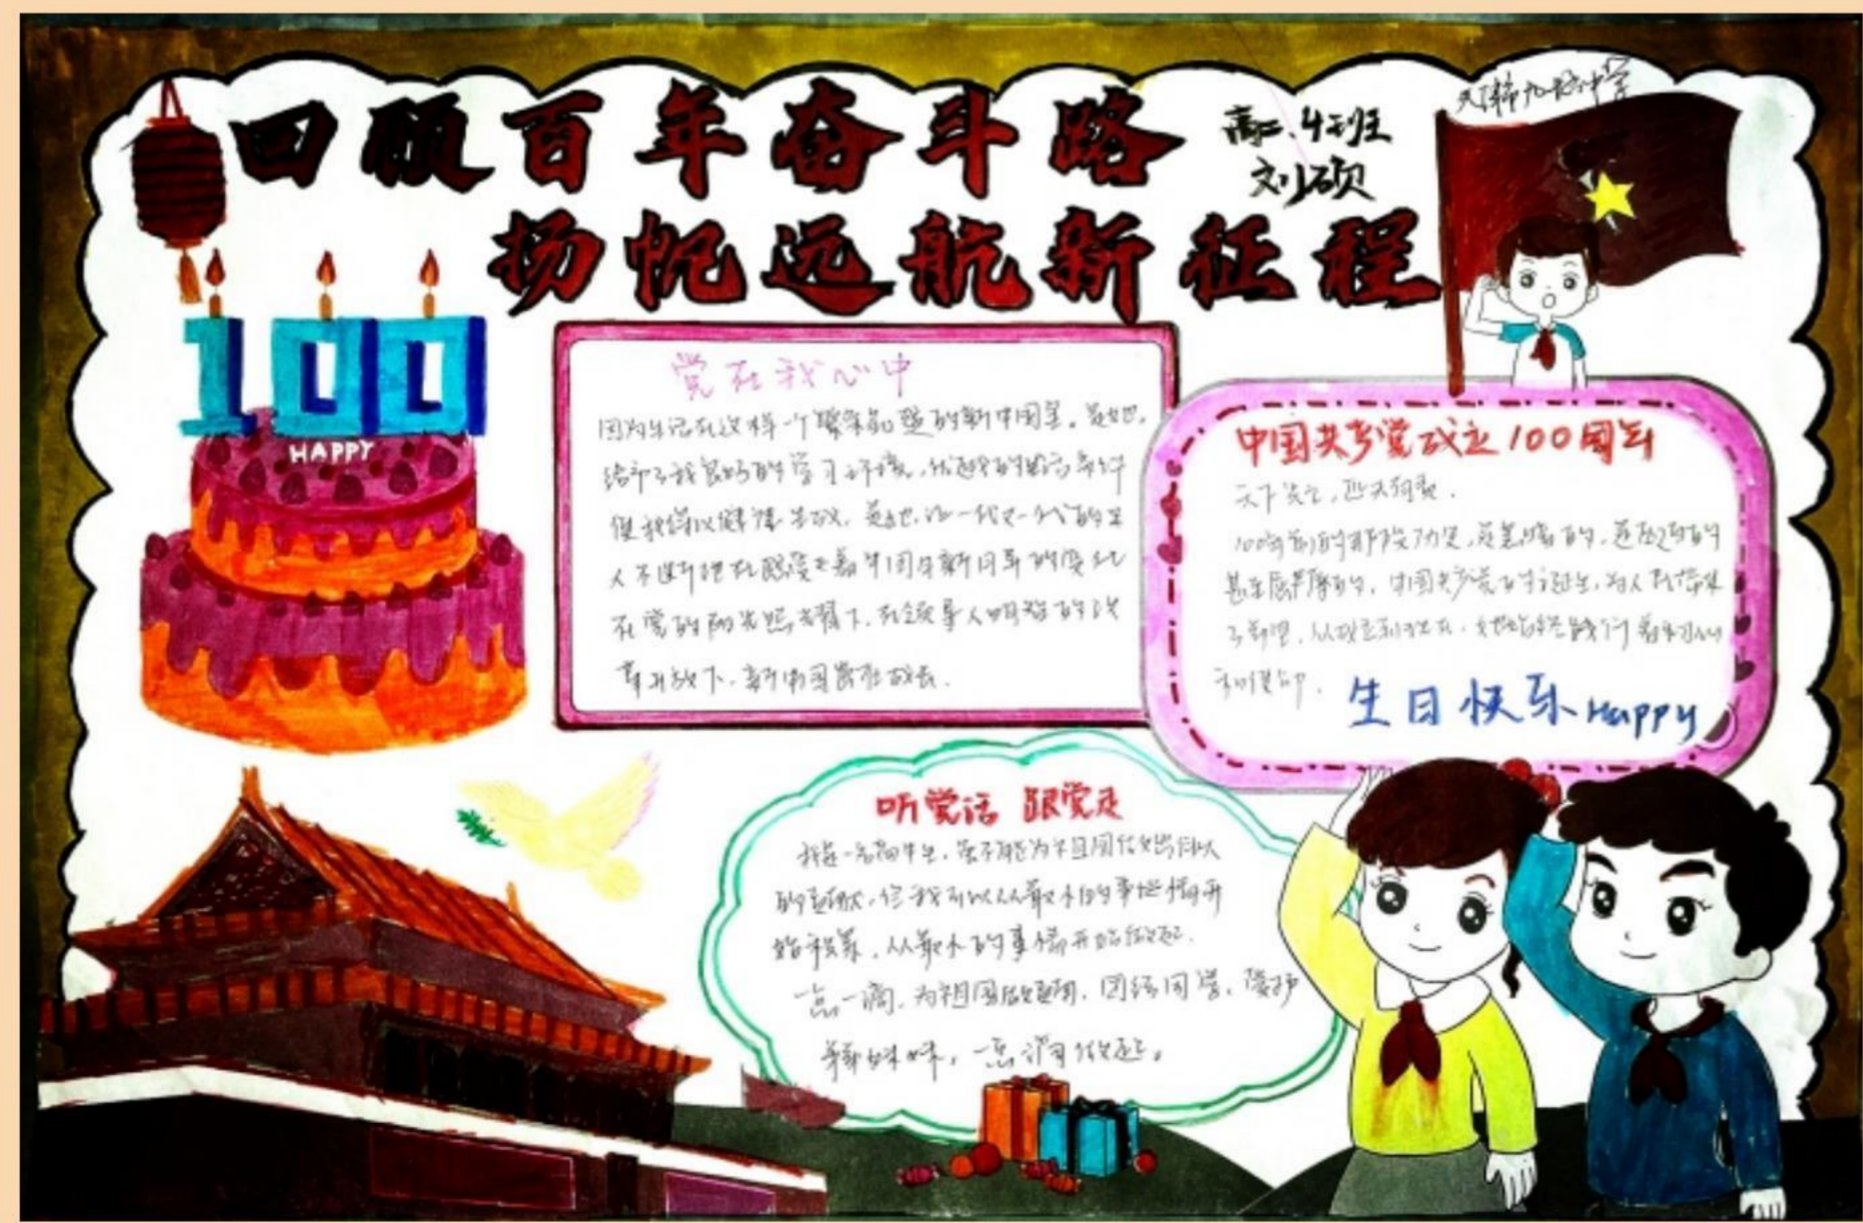 回顾百年奋斗路
扬帆远航新征程
高二.4班
刘硕
100
HAPPY
党在我心中
因为生活在这样一个繁荣昌盛的新中国里。是她,
给予了我良好的学习环境,优越的生活条件
使我得以健康生成。是她,让一代又一代的
人不
在党的阳光照耀下,在领导人明智的决
策引放下,新中国茁壮成长。
中国共产党成立100周年
天下兴亡,匹夫有责.
100年前的那段历史,是黑暗的,是
甚至屈辱的,中国共产党的诞生,为人民带来
了希望,从成立到现在,她始终践行着
生日快乐Happy
听党话 跟党走
我是一名高中生,虽不能为祖国做出巨大
的贡献,但我可以从最小的事情开
始积累,从最小的事情开始做起.
一点一滴,为祖国做贡献,团结同学,爱护
弟弟妹妹,一点一滴做起。